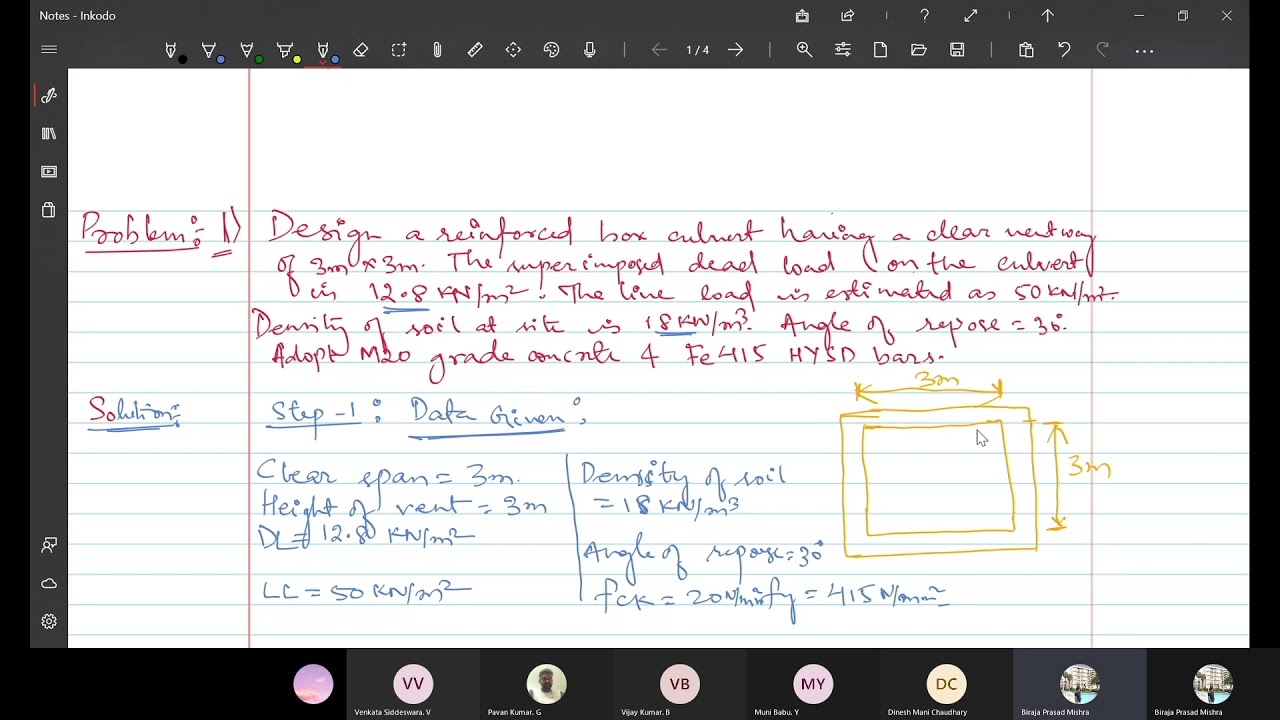 Notes - Inkodo
1 / 4
Problem:- 1) Design a reinforced box culvert having a clear vent way
of 3m × 3m. The superimposed dead load (on the culvert)
is 12.8 KN/m². The live load is estimated as 50 KN/m².
Density of soil at site is 18 KN/m³. Angle of repose = 30°.
Adopt M20 grade concrete & Fe 415 HYSD bars.
3m
Solution:- Step-1: Data Given:
Clear span = 3m.
Height of vent = 3m
DL = 12.80 KN/m²
LL = 50 KN/m²
Density of soil
= 18 KN/m³
Angle of repose = 30°
fck = 20 N/mm² fy = 415 N/mm²
3m
VV
VB
MY
DC
Venkata Siddeswara. V
Pavan Kumar. G
Vijay Kumar. B
Muni Babu. Y
Dinesh Mani Chaudhary
Biraja Prasad Mishra
Biraja Prasad Mishra